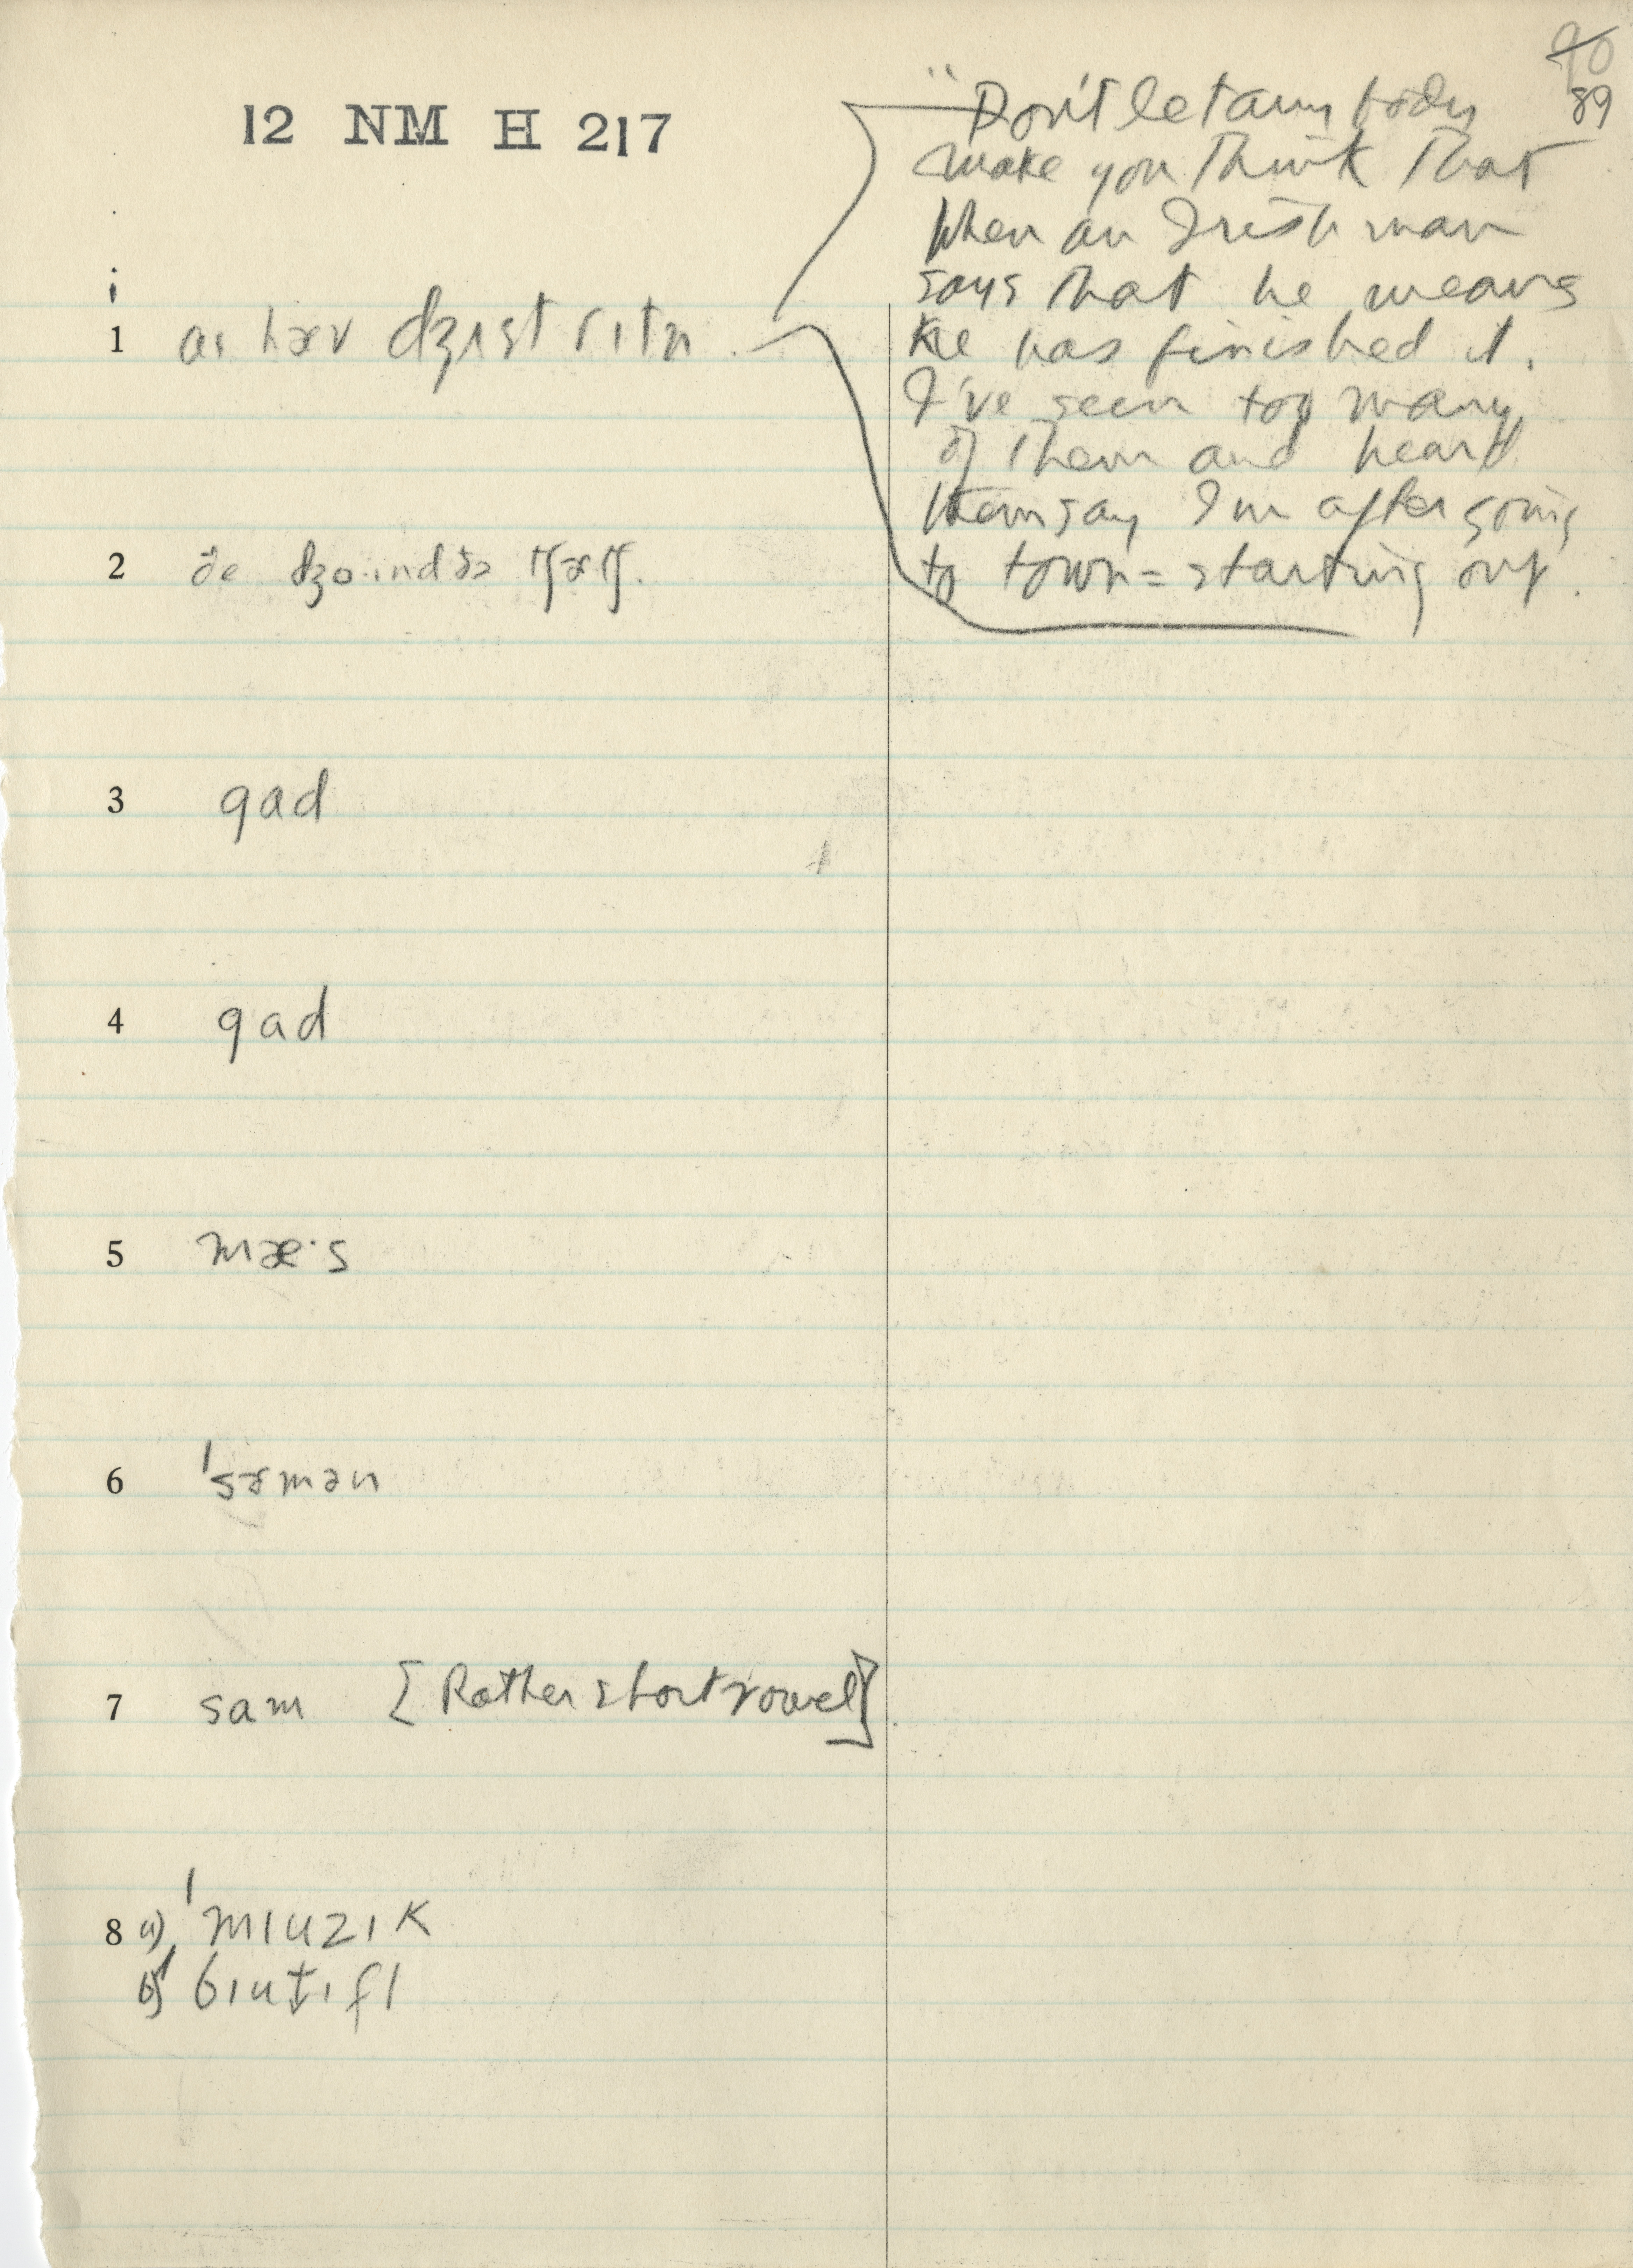 90
89
12 NM H 217
"Don't let any body
make you think that
when an Irishman
says that he means
he has finished it.
I've seen too many
of them and heard
them say I'm after going
to town = starting out.
1 aɪ hæv dʒɪst rɪtn̩
2 ðe dʒo·ɪnd ðə tʃɝtʃ.
3 gad
4 gad
5 mæ·s
6 ˈsɝmən
7 sam [Rather short vowel]
8 a) ˈmɪuzɪk
b) ˈbɪut̬ɪfl